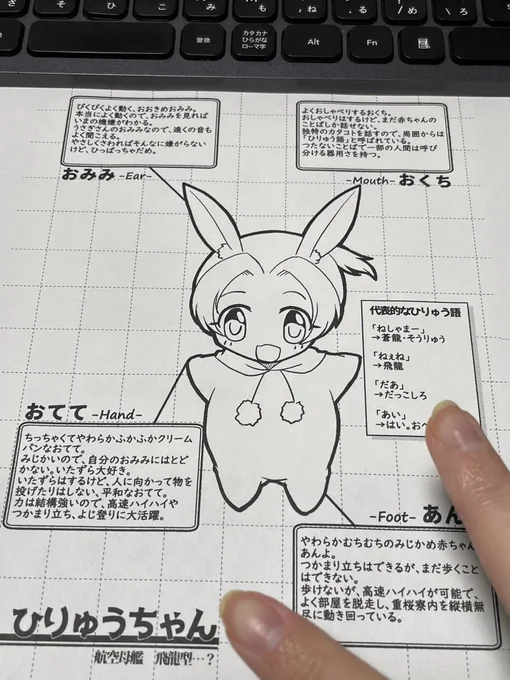 変換
カタカナ
ひらがな
ローマ字
Alt
Fn
ぴくぴくよく動く、おおきめおみみ。
本当によく動くので、おみみを見れば
いまの機嫌がわかる。
うさぎさんのおみみなので、遠くの音も
よく聞こえる。
やさしくさわればそんなに嫌がらない
けど、ひっぱっちゃだめ。
おみみ -Ear-
よくおしゃべりするおくち。
おしゃべりはするけど、まだ赤ちゃんの
ことばしか話せない。
独特のカタコトを話すので、周囲からは
「ひりゅう語」と呼ばれている。
つたないことばで一部の人間は呼び
分ける器用さを持つ。
-Mouth- おくち
代表的なひりゅう語
「ねしゃまー」
→蒼龍・そうりゅう
「ねぇね」
→飛龍
「だあ」
→だっこしろ
「あい」
→はい。
おてて -Hand-
ちっちゃくてやわらかふかふかクリーム
パンなおてて。
みじかいので、自分のおみみにはとど
かない。いたずら大好き。
いたずらはするけど、人に向かって物を
投げたりはしない、平和なおてて。
力は結構強いので、高速ハイハイや
つかまり立ち、よじ登りに大活躍。
-Foot- あん
やわらかむちむちのみじかめ赤ちゃん
あんよ。
つかまり立ちはできるが、まだ歩くこと
はできない。
歩けないが、高速ハイハイが可能で、
よく部屋を脱走し、重桜寮内を縦横無
尽に動き回っている。
ひりゅうちゃん
航空母艦 飛龍型…?